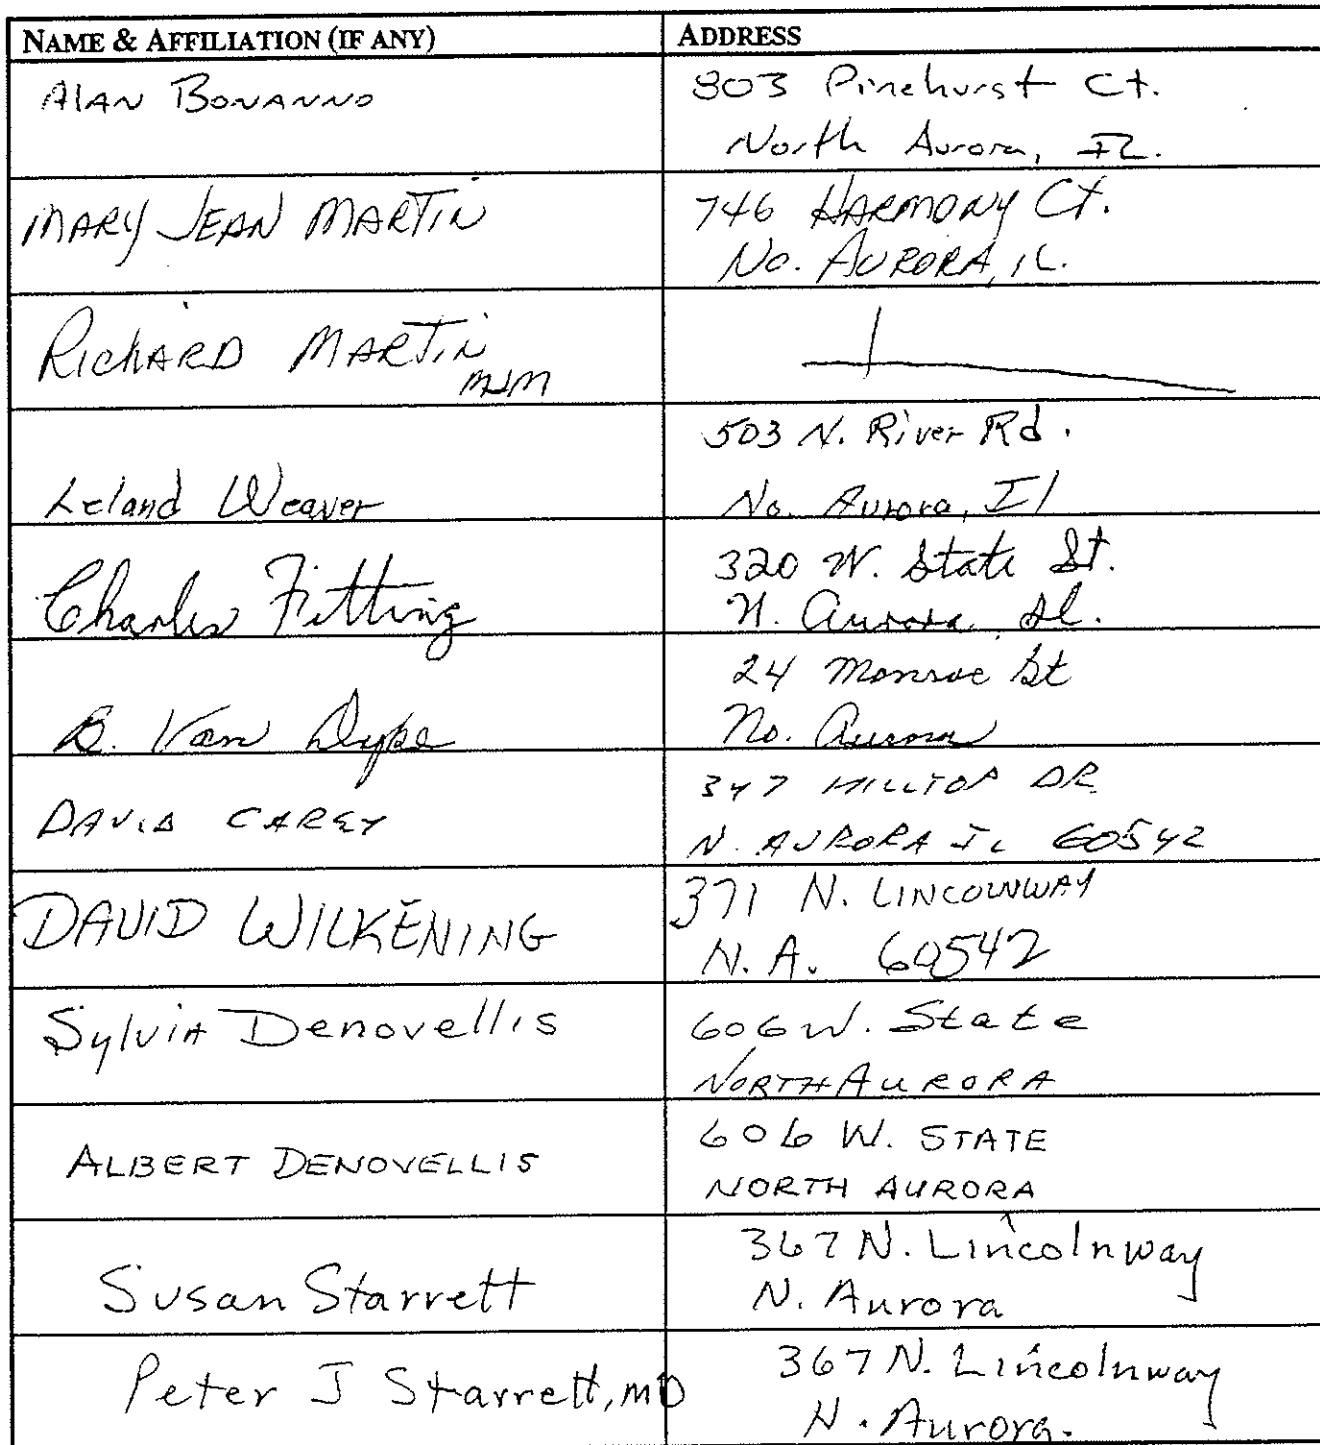 NAME & AFFILIATION (IF ANY) ADDRESS
Alan Bonanno 803 Pinehurst Ct.
North Aurora, IL.
MARY JEAN MARTIN 746 HARMONY Ct.
No. AURORA, IL.
RichARD MARTIN
MJM
503 N. River Rd.
Leland Weaver No. Aurora, Il
Charles Fitting 320 W. State St.
N. Aurora, Il.
24 Monroe St
B. Van Dyke No. Aurora
DAVID CAREY 347 HILLTOP DR.
N. AURORA IL 60542
DAVID WILKENING 371 N. LINCOLNWAY
N. A. 60542
Sylvia Denovellis 606 W. State
NORTH AURORA
ALBERT DENOVELLIS 606 W. STATE
NORTH AURORA
Susan Starrett 367 N. Lincolnway
N. Aurora
Peter J Starrett, MD 367 N. Lincolnway
N. Aurora.